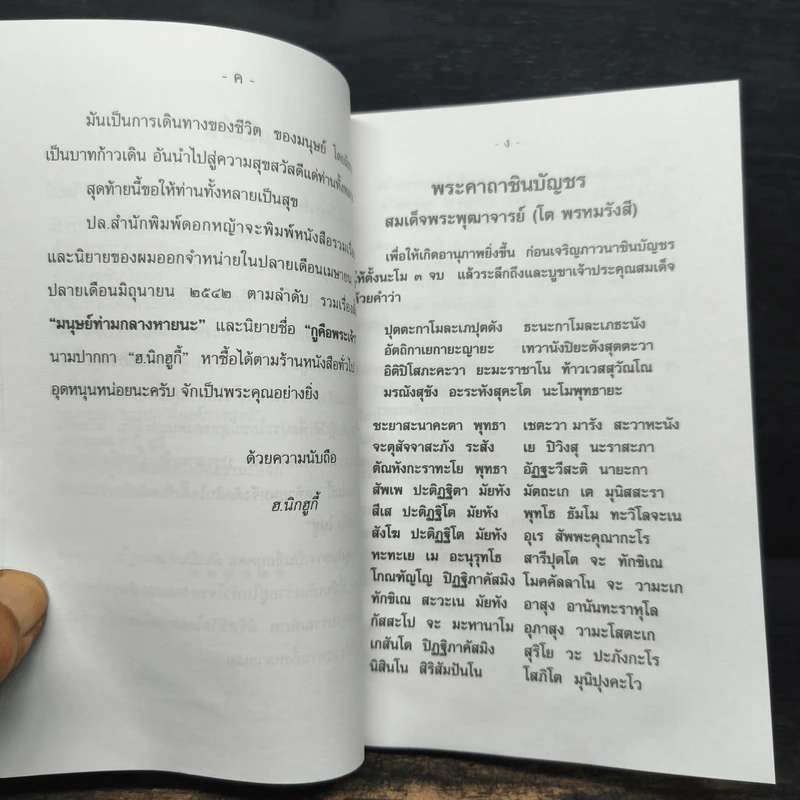 - ค -
มันเป็นการเดินทางของชีวิต ของมนุษย์
เป็นบาทก้าวเดิน อันนำไปสู่ความสุขสวัสดีแด่ท่านทั้งหลาย
สุดท้ายนี้ขอให้ท่านทั้งหลายเป็นสุข
ปล.สำนักพิมพ์ดอกหญ้าจะพิมพ์หนังสือรวมเรื่อง
และนิยายของผมออกจำหน่ายในปลายเดือนเมษายน
ปลายเดือนมิถุนายน ๒๕๔๒ ตามลำดับ รวมเรื่อง
“มนุษย์ท่ามกลางหายนะ” และนิยายชื่อ “กูคือพระเจ้า
นามปากกา “ฮ.นิกฮูกี้” หาซื้อได้ตามร้านหนังสือทั่วไป
อุดหนุนหน่อยนะครับ จักเป็นพระคุณอย่างยิ่ง
ด้วยความนับถือ
ฮ.นิกฮูกี้
- ง -
พระคาถาชินบัญชร
สมเด็จพระพุฒาจารย์ (โต พรหมรังสี)
เพื่อให้เกิดอานุภาพยิ่งขึ้น ก่อนเจริญภาวนาชินบัญชร
ให้ตั้งนะโม ๓ จบ แล้วระลึกถึงและบูชาเจ้าประคุณสมเด็จ
ด้วยคำว่า
ปุตตะกาโมละเภปุตตัง ธะนะกาโมละเภธะนัง
อัตถิกาเยกายะญายะ เทวานังปิยะตังสุตตะวา
อิติปิโสภะคะวา ยะมะราชาโน ท้าวเวสสุวัณโณ
มรณังสุขัง อะระหังสุคะโต นะโมพุทธายะ
ชะยาสะนาคะตา พุทธา เชตะวา มารัง สะวาหะนัง
จะตุสัจจาสะภัง ระสัง เย ปิวิงสุ นะราสะภา
ตัณหังกะราทะโย พุทธา อัฏฐะวีสะติ นายะกา
สัพเพ ปะติฏฐิตา มัยหัง มัตถะเก เต มุนิสสะรา
สีเส ปะติฏฐิโต มัยหัง พุทโธ ธัมโม ทะวิโลจะเน
สังโฆ ปะติฏฐิโต มัยหัง อุเร สัพพะคุณากะโร
หะทะเย เม อะนุรุทโธ สารีปุตโต จะ ทักขิเณ
โกณฑัญโญ ปิฏฐิภาคัสมิง โมคคัลลาโน จะ วามะเก
ทักขิเณ สะวะเน มัยหัง อาสุง อานันทะราหุโล
กัสสะโป จะ มะหานาโม อุภาสุง วามะโสตะเก
เกสันโต ปิฏฐิภาคัสมิง สุริโย วะ ปะภังกะโร
นิสินโน สิริสัมปันโน โสภิโต มุนิปุงคะโว